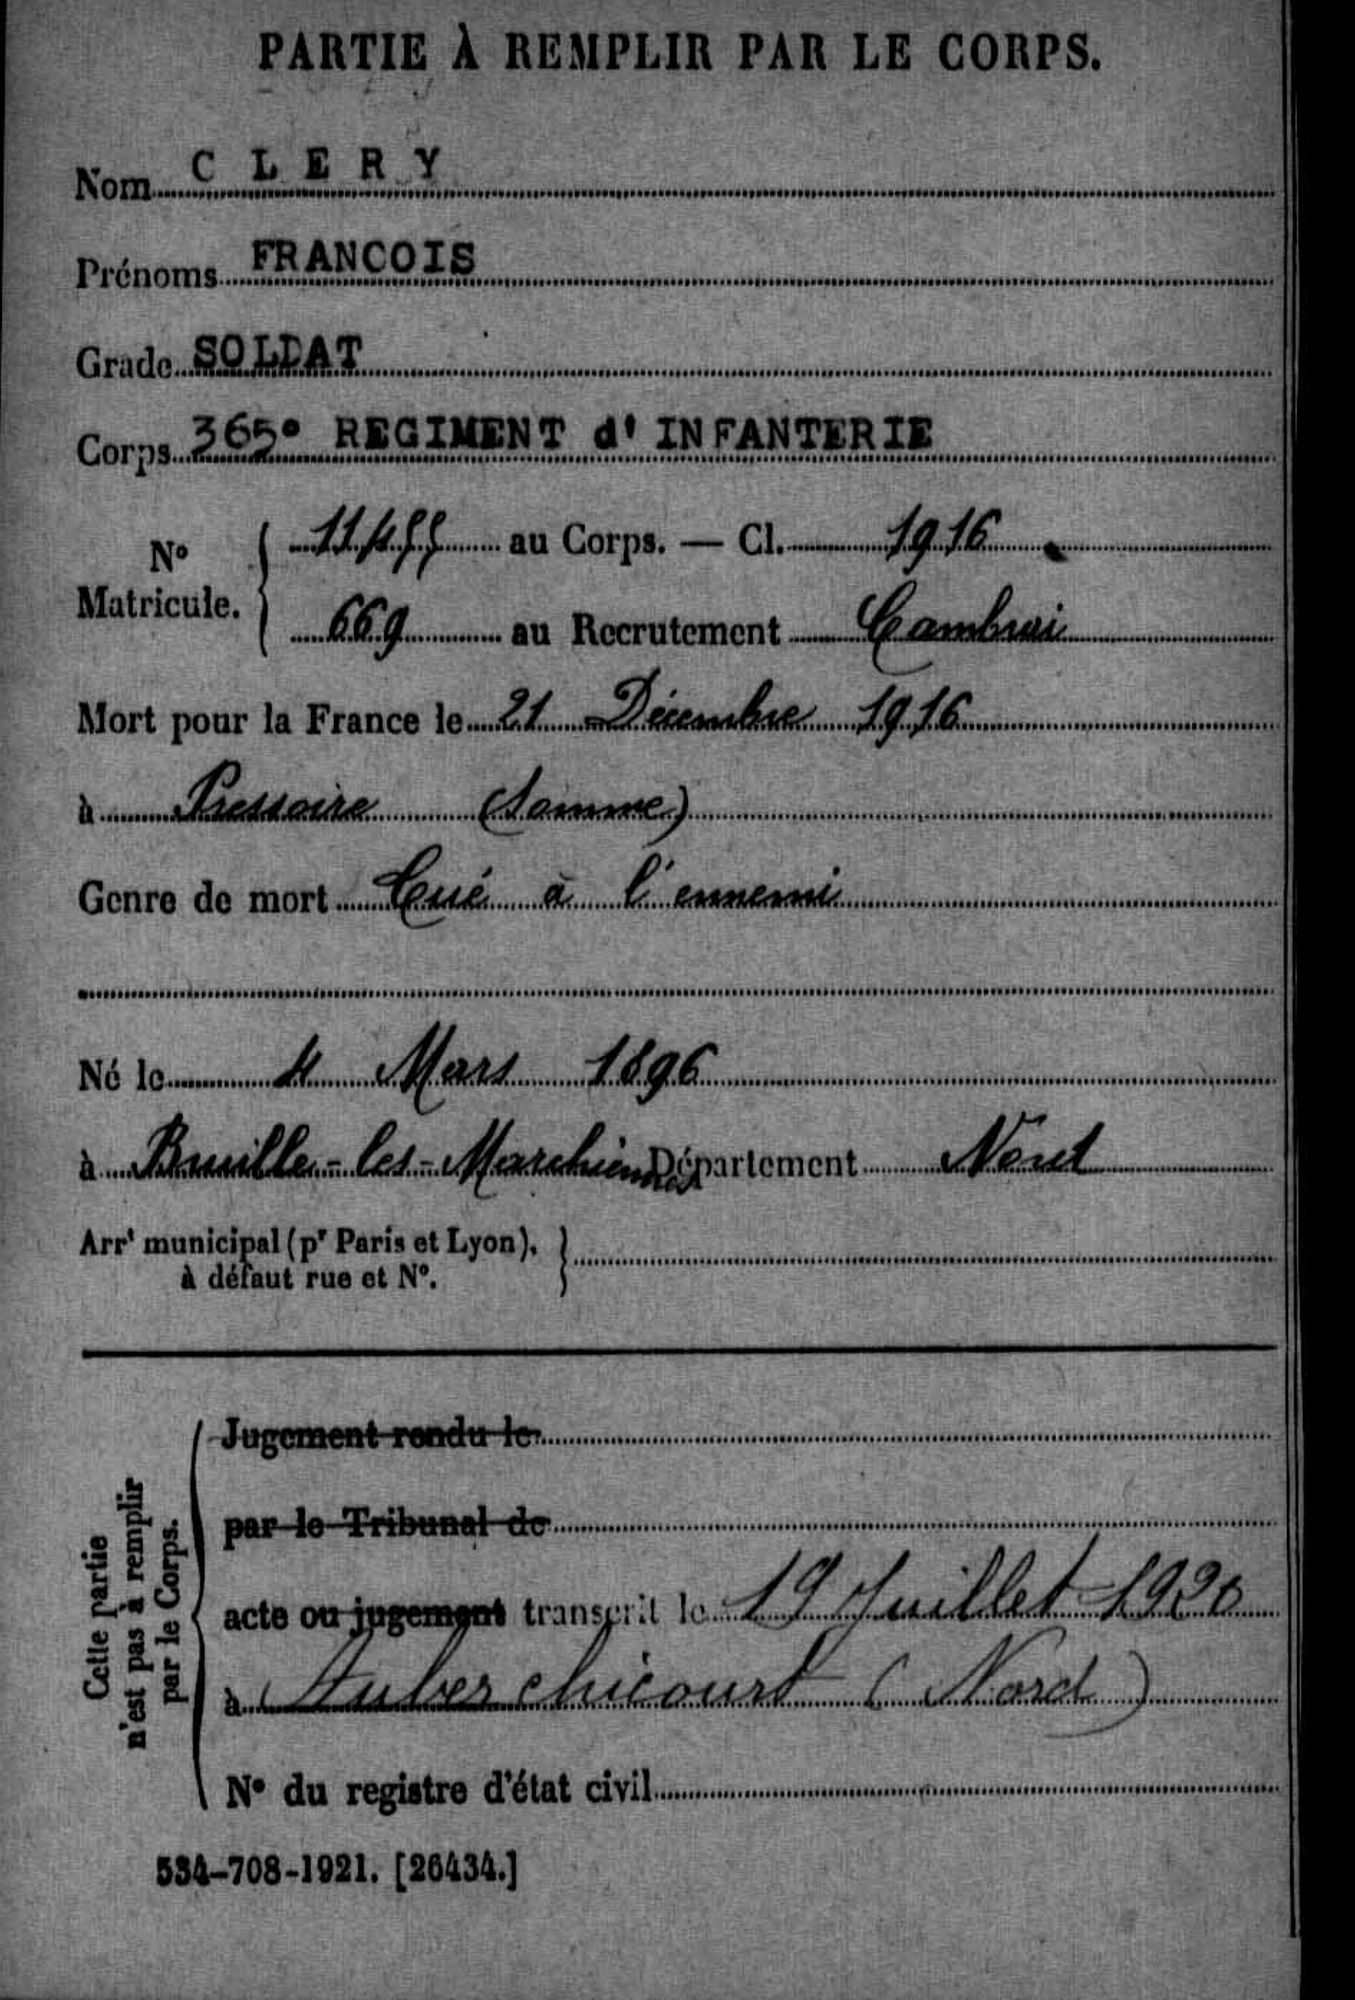 PARTIE À REMPLIR PAR LE CORPS.
Nom CLERY
Prénoms FRANCOIS
Grade SOLDAT
Corps 365e REGIMENT d'INFANTERIE
No Matricule. { 11455 au Corps. — Cl. 1916
669 au Recrutement Cambrai
Mort pour la France le 21 Décembre 1916
à Pressoire (Somme)
Genre de mort Tué à l'ennemi
Né le 4 Mars 1896
à Bruille-les-Marchiennes Département Nord
Arrt municipal (pr Paris et Lyon), }
à défaut rue et No.
Cette partie
n'est pas à remplir
par le Corps.
Jugement rendu le
par le Tribunal de
acte ou jugement transcrit le 19 Juillet 1920
à Auberchicourt (Nord)
No du registre d'état civil
534-708-1921. [26434.]